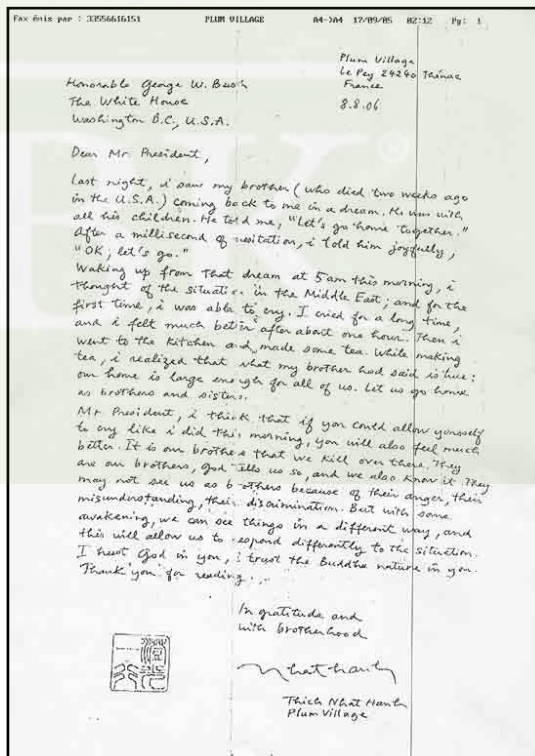 Fax émis par : 33556616151 PLUM VILLAGE A4->A4 17/09/05 02:12 Pg: 1
Plum Village
Le Pey 24240 Thénac
France
8.8.06
Honorable George W. Bush
The White House
Washington D.C., U.S.A.
Dear Mr. President,
Last night, i saw my brother (who died two weeks ago
in the U.S.A.) coming back to me in a dream. He was with
all his children. He told me, "Let's go home together."
After a millisecond of hesitation, i told him joyfully,
"OK, let's go."
Waking up from that dream at 5am this morning, i
thought of the situation in the Middle East; and for the
first time, i was able to cry. I cried for a long time,
and i felt much better after about one hour. Then i
went to the kitchen and made some tea. While making
tea, i realized that what my brother had said is true:
our home is large enough for all of us. Let us go home
as brothers and sisters.
Mr. President, i think that if you could allow yourself
to cry like i did this morning, you will also feel much
better. It is our brothers that we kill over there. They
are our brothers, God tells us so, and we also know it. They
may not see us as brothers because of their anger, their
misunderstanding, their discrimination. But with some
awakening, we can see things in a different way, and
this will allow us to respond differently to the situation.
I trust God in you, i trust the Buddha nature in you.
Thank you for reading.
In gratitude and
with brotherhood
Nhat Hanh
Thich Nhat Hanh
Plum Village